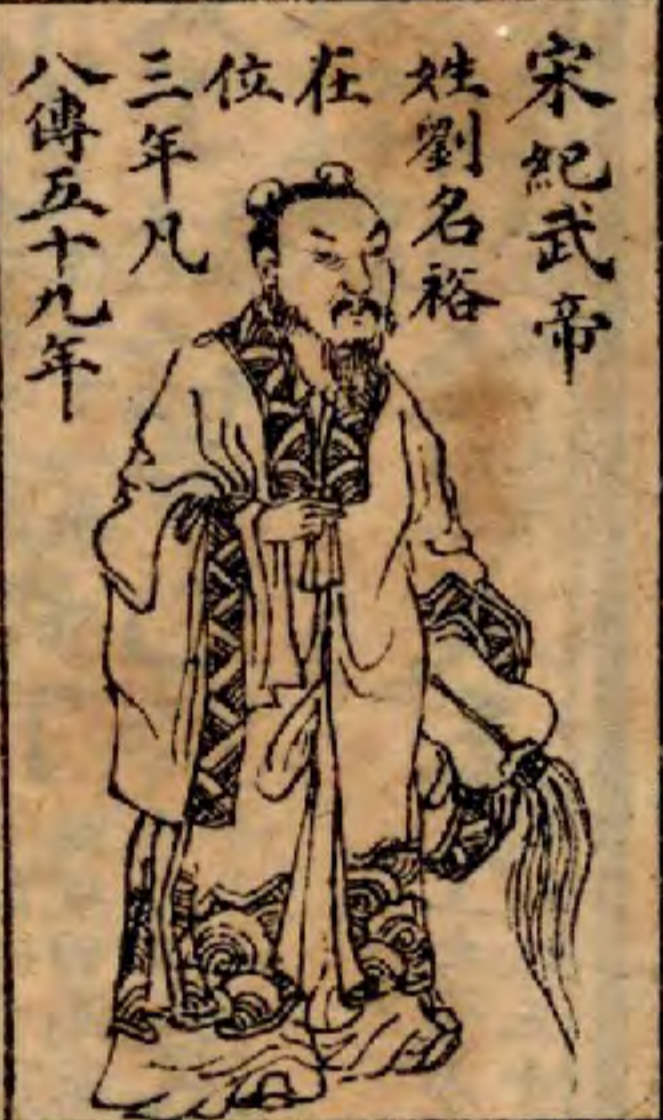 宋紀武帝
姓劉名裕
在
位
三年凡
八傳五十九年